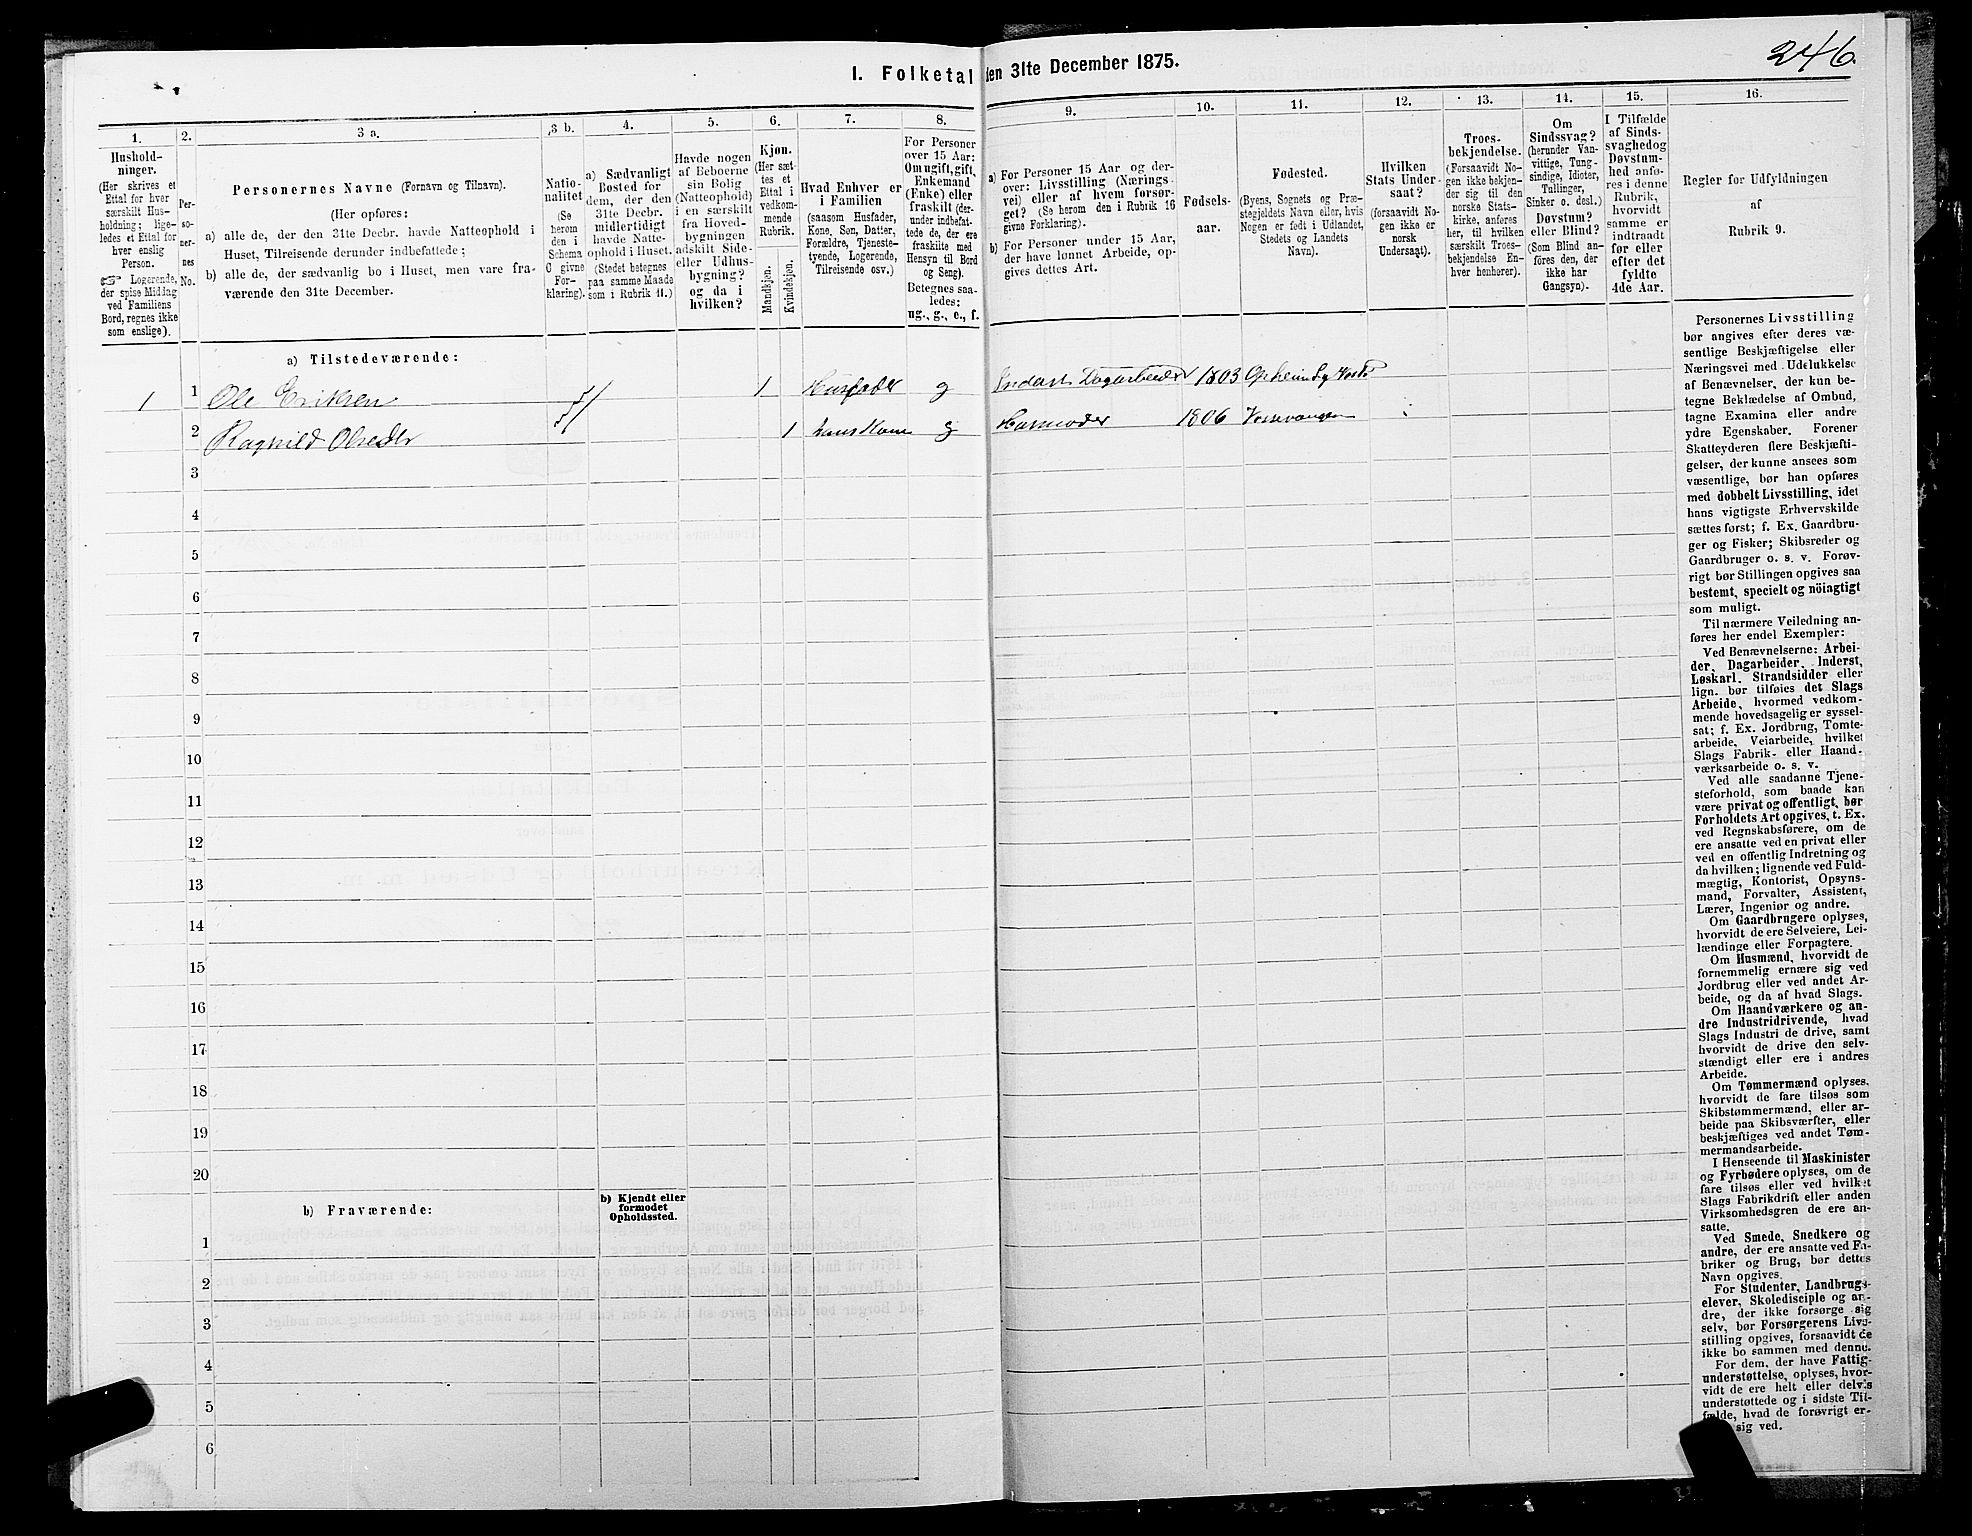 246.
I. Folketal den 31te December 1875.
1. 2. 3 a. 3 b. 4. 5. 6. 7. 8. 9. 10. 11. 12. 13. 14. 15. 16.
Hushold-
ninger.
(Her skrives et
Ettal for hver
særskilt Hus-
holdning; lige-
ledes et Ettal for
hver enslig
Person.
☞ Logerende,
der spise Middag
ved Familiens
Bord, regnes ikke
som enslige).
Per-
so-
ner-
nes
No.
Personernes Navne (Fornavn og Tilnavn).
(Her opføres:
a) alle de, der den 31te Decbr. havde Natteophold i
Huset, Tilreisende derunder indbefattede;
b) alle de, der sædvanlig bo i Huset, men vare fra-
værende den 31te December.
Natio-
nalitet
(Se
herom
den i
Schema
C givne
For-
klaring).
a) Sædvanligt
Bosted for
dem, der den
31te Decbr.
midlertidigt
havde Natte-
ophold i Huset.
(Stedet betegnes
paa samme Maade
som i Rubrik 11.)
Havde nogen
af Beboerne
sin Bolig
(Natteophold)
i en særskilt
fra Hoved-
bygningen
adskilt Side-
eller Udhus-
bygning?
og da i
hvilken?
Kjøn.
(Her sæt-
tes et
Ettal i
vedkom-
mende
Rubrik.
Mandkjøn.
Kvindekjøn.
Hvad Enhver er
i Familien
(saasom Husfader,
Kone, Søn, Datter,
Forældre, Tjeneste-
tyende, Logerende,
Tilreisende osv.)
For Personer
over 15 Aar:
Om ugift, gift,
Enkemand
(Enke) eller
fraskilt (der-
under indbefat-
tede de, der ere
fraskilte med
Hensyn til Bord
og Seng).
Betegnes saa-
ledes:
ug., g., e., f.
a) For Personer 15 Aar og der-
over: Livsstilling (Nærings-
vei) eller af hvem forsør-
get? (Se herom den i Rubrik 16
givne Forklaring).
b) For Personer under 15 Aar,
der have lønnet Arbeide, op-
gives dettes Art.
Fødsels-
aar.
Fødested.
(Byens, Sognets og Præ-
stegjeldets Navn eller, hvis
Nogen er født i Udlandet,
Stedets og Landets
Navn).
Hvilken
Stats Under-
saat?
(forsaavidt No-
gen ikke er
norsk
Undersaat).
Troes-
bekjendelse.
(Forsaavidt No-
gen ikke bekjen-
der sig til den
norske Stats-
kirke, anføres
her, til hvilken
særskilt Troes-
bekjendelse En-
hver henhører).
Om
Sindssvag?
(herunder Van-
vittige, Tung-
sindige, Idioter,
Tullinger,
Sinker o. desl.)
Døvstum?
eller Blind?
(Som Blind an-
føres den, der
ikke har
Gangsyn).
I Tilfælde
af Sinds-
svaghed og
Døvstum-
hed anfø-
res i denne
Rubrik,
hvorvidt
samme er
indtraadt
før eller
efter det
fyldte
4de Aar.
Regler for Udfyldningen
af
Rubrik 9.
a) Tilstedeværende:
1 1 Ole Eriksen 1 Husfader g Dagarbeider 1803
2 Ragnild Olsedtr 1 hans Kone g Husmoder 1806 Vossevangen
3
4
5
6
7
8
9
10
11
12
13
14
15
16
17
18
19
20
b) Fraværende:
b) Kjendt eller
formodet
Opholdssted.
1
2
3
4
5
6
Personernes Livsstilling
bør angives efter deres væ-
sentlige Beskjæftigelse eller
Næringsvei med Udelukkelse
af Benævnelser, der kun be-
tegne Beklædelse af Ombud,
tagne Examina eller andre
ydre Egenskaber. Forener
Skatteyderen flere Beskjæfti-
gelser, der kunne ansees som
væsentlige, bør han opføres
med dobbelt Livsstilling, idet
hans vigtigste Erhvervskilde
sættes først; f. Ex. Gaardbru-
ger og Fisker; Skibsreder og
Gaardbruger o. s. v. Forøv-
rigt bør Stillingen opgives saa
bestemt, specielt og nöiagtigt
som muligt.
Til nærmere Veiledning an-
føres her endel Exempler:
Ved Benævnelserne: Arbei-
der, Dagarbeider, Inderst,
Løskarl, Strandsidder eller
lign. bør tilføies det Slags
Arbeide, hvormed vedkom-
mende hovedsagelig er syssel-
sat; f. Ex. Jordbrug, Tomte-
arbeide, Veiarbeide, hvilket
Slags Fabrik- eller Haand-
værksarbeide o. s. v.
Ved alle saadanne Tjene-
steforhold, som baade kan
være privat og offentligt, bør
Forholdets Art opgives, t. Ex.
ved Regnskabsførere, om de
ere ansatte ved en privat eller
ved en offentlig Indretning og
da hvilken; lignende ved Fuld-
mægtig, Kontorist, Opsyns-
mand, Forvalter, Assistent,
Lærer, Ingeniør og andre.
Om Gaardbrugere oplyses,
hvorvidt de ere Selveiere, Lei-
lændinge eller Forpagtere.
Om Husmænd, hvorvidt de
fornemmelig ernære sig ved
Jordbrug eller ved andet Ar-
beide, og da af hvad Slags.
Om Haandværkere og an-
dre Industridrivende, hvad
Slags Industri de drive, samt
hvorvidt de drive den selv-
stændigt eller ere i andres
Arbeide.
Om Tømmermænd oplyses,
hvorvidt de fare tilsøs som
Skibstømmermænd, eller ar-
beide paa Skibsværfter, eller
beskjæftiges ved andet Tøm-
mermandsarbeide.
I Henseende til Maskinister
og Fyrbødere oplyses, om de
fare tilsøs eller ved hvilket
Slags Fabrikdrift eller anden
Virksomhedsgren de ere an-
satte.
Ved Smede, Snedkere og
andre, der ere ansatte ved Fa-
briker og Brug, bør dettes
Navn opgives.
For Studenter, Landbrugs-
elever, Skoledisciple og an-
dre, der ikke forsørge sig
selv, bør Forsørgerens Livs-
stilling opgives, forsaavidt de
ikke bo sammen med denne.
For dem, der have Fattig-
understøttelse, oplyses, hvor-
vidt de ere helt eller delvis
understøttede og i sidste Til-
fælde, hvad de forøvrigt er-
sig ved.